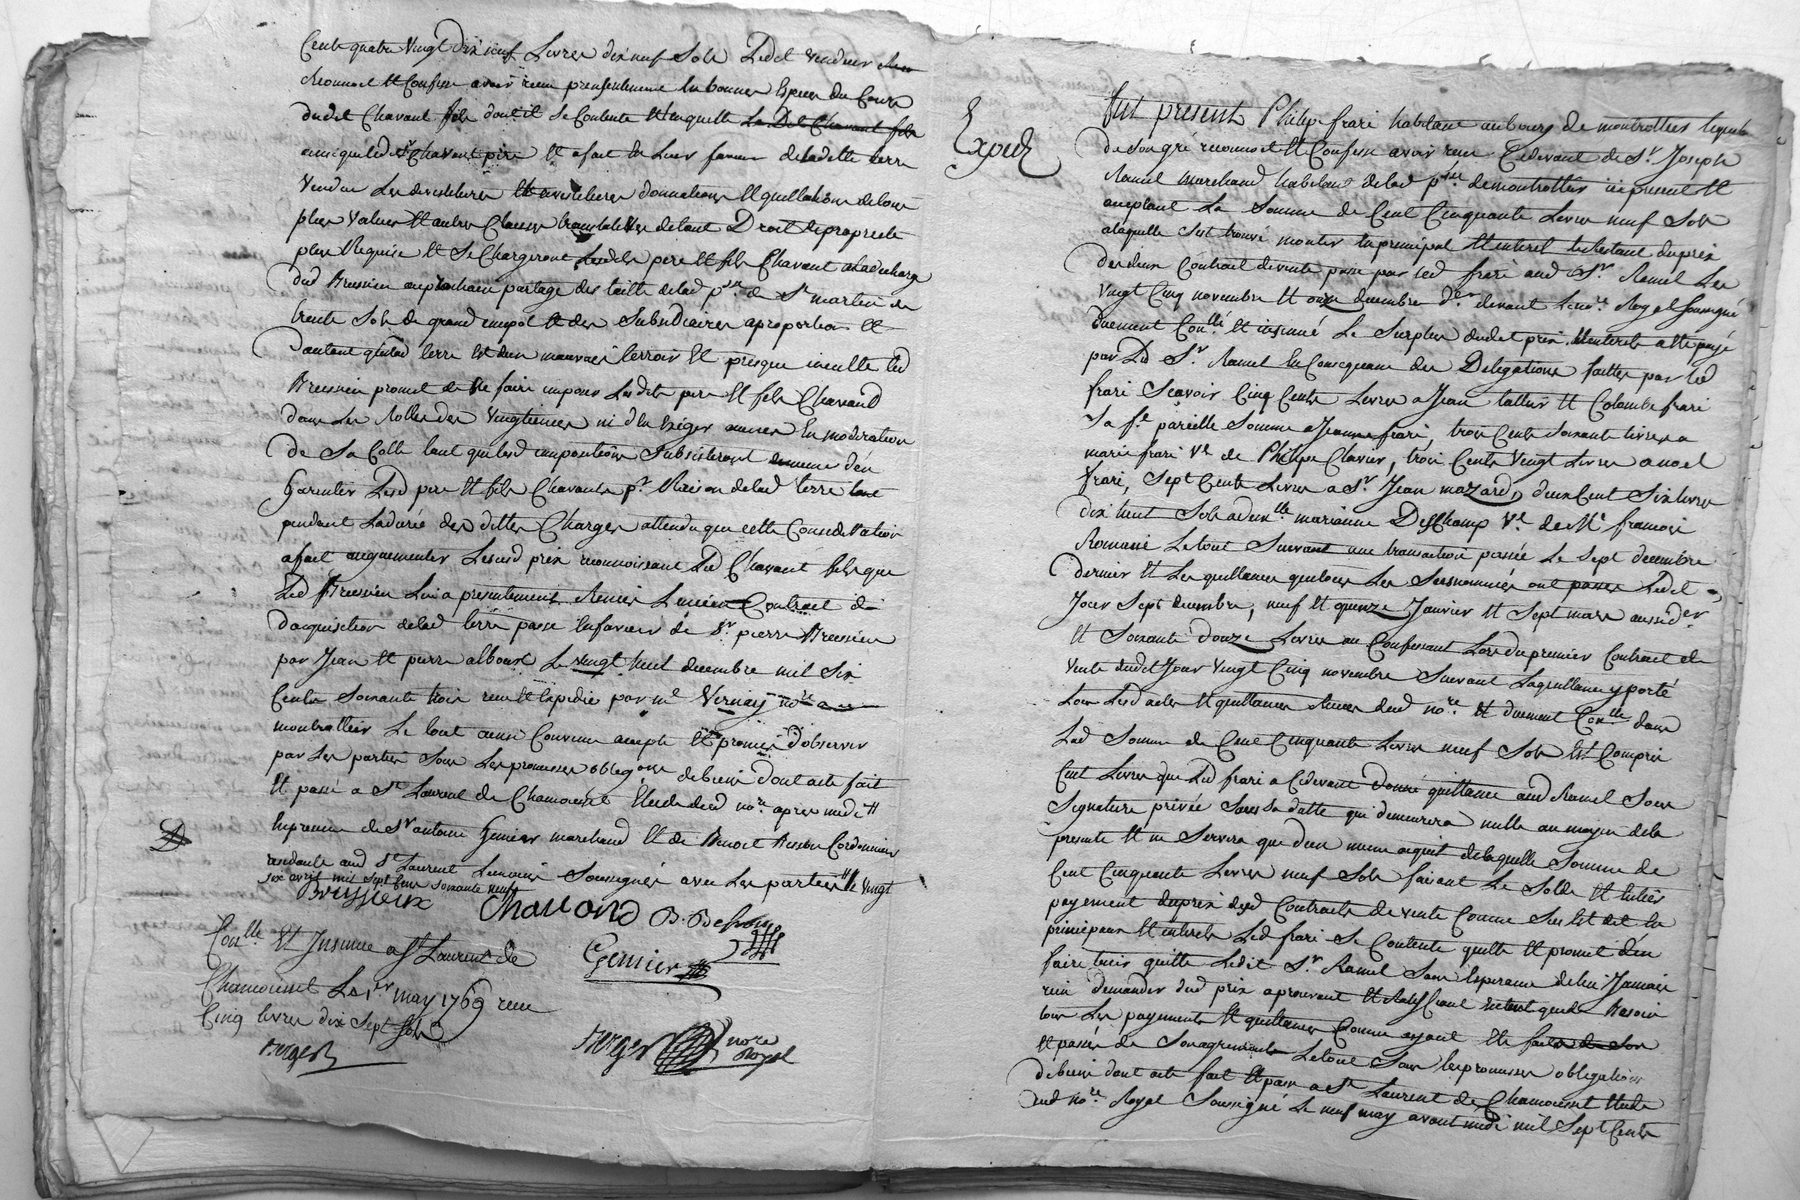 Cents quatre Vingt dix neuf Livres dix neuf Sols Ledt vendeur
Reconnoit Et Confesse avoir reçu presentement En bonnes Especes du Cours
dudt Chavant fils dont il se Contente Et En quitte Le Dt Chavant fils
ainsi que led Sr Chavant pere Et a fait En Leur faveur de ladette terre
Vendue Les devestitures Et investitures donnations Et quittations de tous
plus values Et autres Clauses translatives de tout Droit de propriete
plus Requise Et Se Chargeront Lesdits pere Et fils Chavant a la decharge
dud Bressieu au prochain partage des taille de lad psse de St martin de
trente Sols de grand impot Et des Subsidiaires a proportion Et
d'autant que lad terre Est d'un mauvais terroir Et presque inculte led
Bressieu promet de ne faire imposer Lesdits pere Et fils Chavand
dans Les Rolles des Vingtiemes ni d'En Exiger aucunes En moderation
de Sa Cotte tant que lesd impositions Subsisteront Et meme d'en
Garentir Lesd pere Et fils Chavants pr Raison de lad terre tant
pendant La durée des dittes Charges attendu que cette Consideration
a fait augmenter Le susd prix reconnoissant Led Chavant fils que
Led Bressieu Lui a presentement Remis L'ancien Contract d
d'acquisition de lad terre passé En faveur de Sr pierre Bressieu
par Jean Et pierre albout Le vingt huit decembre mil Six
Cents Soixante trois reçu Et Expedié par me Vernay nore a
montrottier Le tout ainsi Convenu accepté Et promis d'observer
par Les parties Sous Les promesses obligons de biens dont acte fait
Et passé a St Laurent de Chamousset Etude dud nore apres midi En
la presence de Sr antoine Gemier marchand Et de Benoit Besson Cordonnier
residants aud St Laurent temoins Soussignés avec Les parties Le Vingt
six avril mil sept Cent soixante neuf
Bressieux Chavand B. Besson
Gemier
Conlle Et Insinué a St Laurent de
Chamousset Le 1er may 1769 reçu
Cinq livres dix Sept Sols
Berger
Berger nore Royal
Exped
Fut present Philipe frari habitant au bourg de montrottier lequel
de Son gré reconnoit Et Confesse avoir reçu Cidevant de Sr Joseph
Ramel marchand habitant de lad psse de montrottier icy present Et
acceptant La Somme de Cent Cinquante Livres neuf Sols
a laquelle S'est trouvé monter En principal Et interet Le restant du prix
des deux Contract de vente passé par led frari aud Sr Ramel Les
Vingt Cinq novembre Et onze decembre der devant Le nore Royal Soussigné
duement Conllé Et insinué Le Surplus dudit prix Et interets a Eté payé
par Led Sr Ramel En Consequence des Delegations faittes par led
frari Sçavoir Cinq Cents Livres a Jean tattier Et Colombe frari
Sa fe pareille Somme a Jeanne frari, trois Cents Soixante livres a
marie frari Ve de Philipe Clavier, trois Cents Vingt Livres a noel
frari, Sept Cents Livres a Sr Jean mazard, deux Cent Six livres
dix huit Sols a demlle marianne Deschamp Ve de Mr françois
Romani Le tout Suivant une transaction passée Le Sept decembre
dernier Et Les quittances que tous Les Susnommés ont passés Ledt
Jour Sept decembre, neuf Et quinze Janvier Et Sept mars aussi der
Et Soixante douze Livres au Confessant Lors du premier Contract de
vente dudit Jour Vingt Cinq novembre Suivant La quittance y porté
tous Lesd actes Et quittances Reçues dud nore Et duement Conlle dans
Lad Somme de Cent Cinquante Livres neuf Sols Est Compris
Cent Livres que Led frari a Cidevant donné quittance aud Ramel Sous
Signature privée Sous Sa datte qui demeurera nulle au moyen de la
presente Et ne Servira que d'un meme acquit de laquelle Somme de
Cent Cinquante Livres neuf Sols faisant Le Solde Et Entier
payement du prix desd Contracts de vente Comme Sus Est dit En
principaux Et interets Led frari Se Contente quitte Et promet d'en
faire tenir quitte Ledit Sr Ramel Sans Esperance de lui Jamais
rien demander dud prix aprouvant Et Ratiffiant En tant que de Besoin
tous Les payements Et quittances Comme ayant Eté faits de Son
Et passés de Son agrement Le tout Sous Les promesses obligations
de biens dont acte fait Et passé a St Laurent de Chamousset Etude
dud nore Royal Soussigné Le neuf may avant midi mil Sept Cents